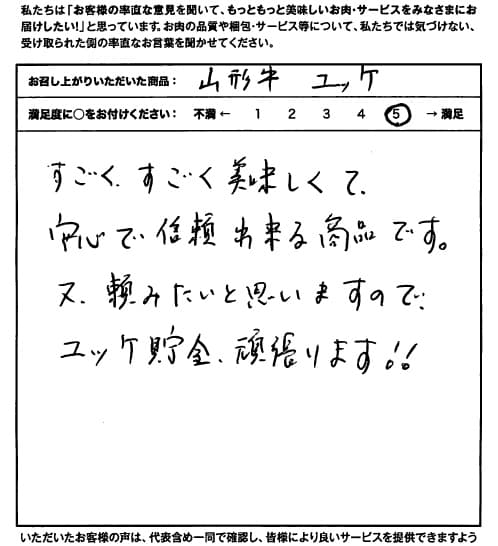 私たちは「お客様の率直な意見を聞いて、もっともっと美味しいお肉・サービスをみなさまにお
届けしたい！」と思っています。お肉の品質や梱包・サービス等について、私たちでは気づけない、
受け取られた側の率直なお言葉を聞かせてください。
お召し上がりいただいた商品： 山形牛 ユッケ
満足度に○をお付けください： 不満 ← 1 2 3 4 5 → 満足
すごく、すごく美味しくて、
安心で信頼出来る商品です。
又、頼みたいと思いますので、
ユッケ貯金、頑張ります!!
いただいたお客様の声は、代表含め一同で確認し、皆様により良いサービスを提供できますよう